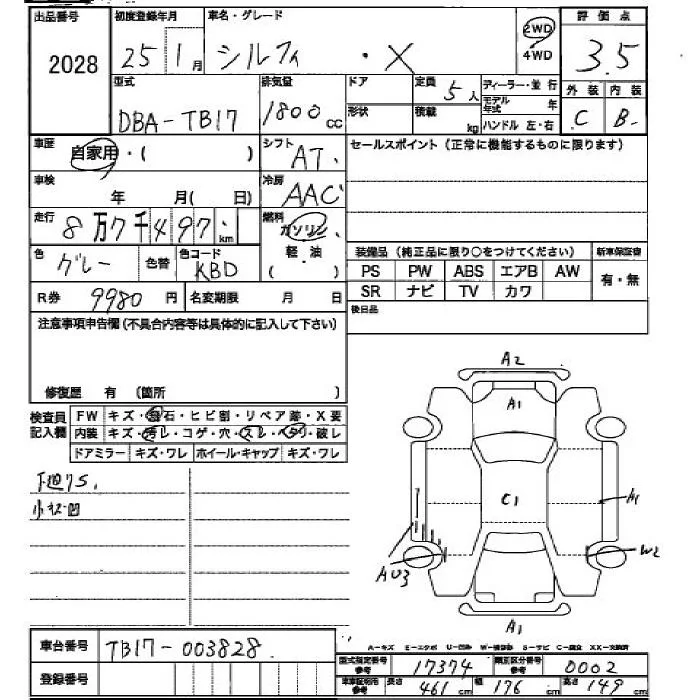 出品番号 初度登録年月 車名・グレード 2WD 評価点
2028 25 1月 シルフィ ・X 4WD 3.5
型式 排気量 ドア 定員 5人 ディーラー・並行 外装 内装
DBA-TB17 1800cc 形状 積載 kg モデル年式 年 C B-
ハンドル 左・右
車歴 自家用・( ) シフト AT セールスポイント(正常に機能するものに限ります)
車検 年 月( 日) 冷房 AAC
走行 8万7千497km 燃料 ガソリン・軽油( )
色 グレー 色替 色コード KBD
装備品(純正品に限り○をつけてください) 新車保証書
PS PW ABS エアB AW 有・無
SR ナビ TV カワ
R券 9980円 名変期限 月 日 後日品
注意事項申告欄(不具合内容等は具体的に記入して下さい)
修復歴 有 (箇所 )
検査員記入欄 FW キズ・飛石・ヒビ割・リペア跡・X要
内装 キズ・汚レ・コゲ・穴・スレ・ヘタリ・破レ
ドアミラー キズ・ワレ ホイール・キャップ キズ・ワレ
下廻りS.
小キズ凹
A2
A1
C1
A1
AU3
W2
A1
A-キズ E-エクボ U-凹み W-補修跡 S-サビ C-腐食 XX-交換済
車台番号 TB17-003828
登録番号
型式指定番号 参考 17374 類別区分番号 参考 0002
車証証明用 参考 長さ 461cm 幅 176cm 高さ 149cm